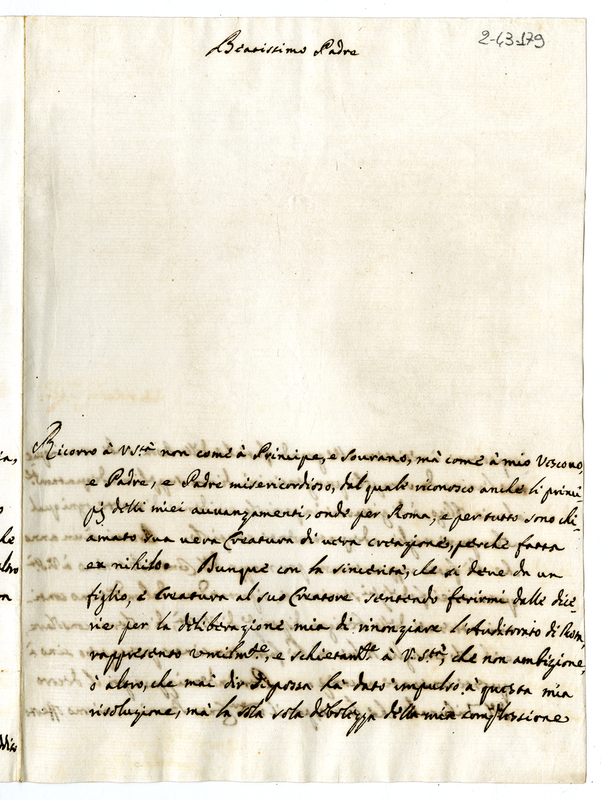 2-43-179
Beatissimo Padre
Ricorro à V Stà non come à Principe, e Sourano, mà come à mio Vescouo,
e Padre, e Padre misericordioso, dal quale riconosco anche li princi
pij delli miei auuanzamenti, onde per Roma, e per tutto sono chi-
amato sua uera Creatura di uera creazione, perche fatta
ex nihilo. Dunque con la sincerità, che si deue da un
figlio, e Creatura al suo Creatore sentendo ferirmi dalle dice-
rie per la deliberazione mia di rinonziare l'Auditorato di Rom,
rappresento umilmte, e schietamte à V Stà, che non ambizione,
ò altro, che mai dir si possa hà dato impulso à questa mia
risoluzione, mà la sola sola debolezza della mia complessione